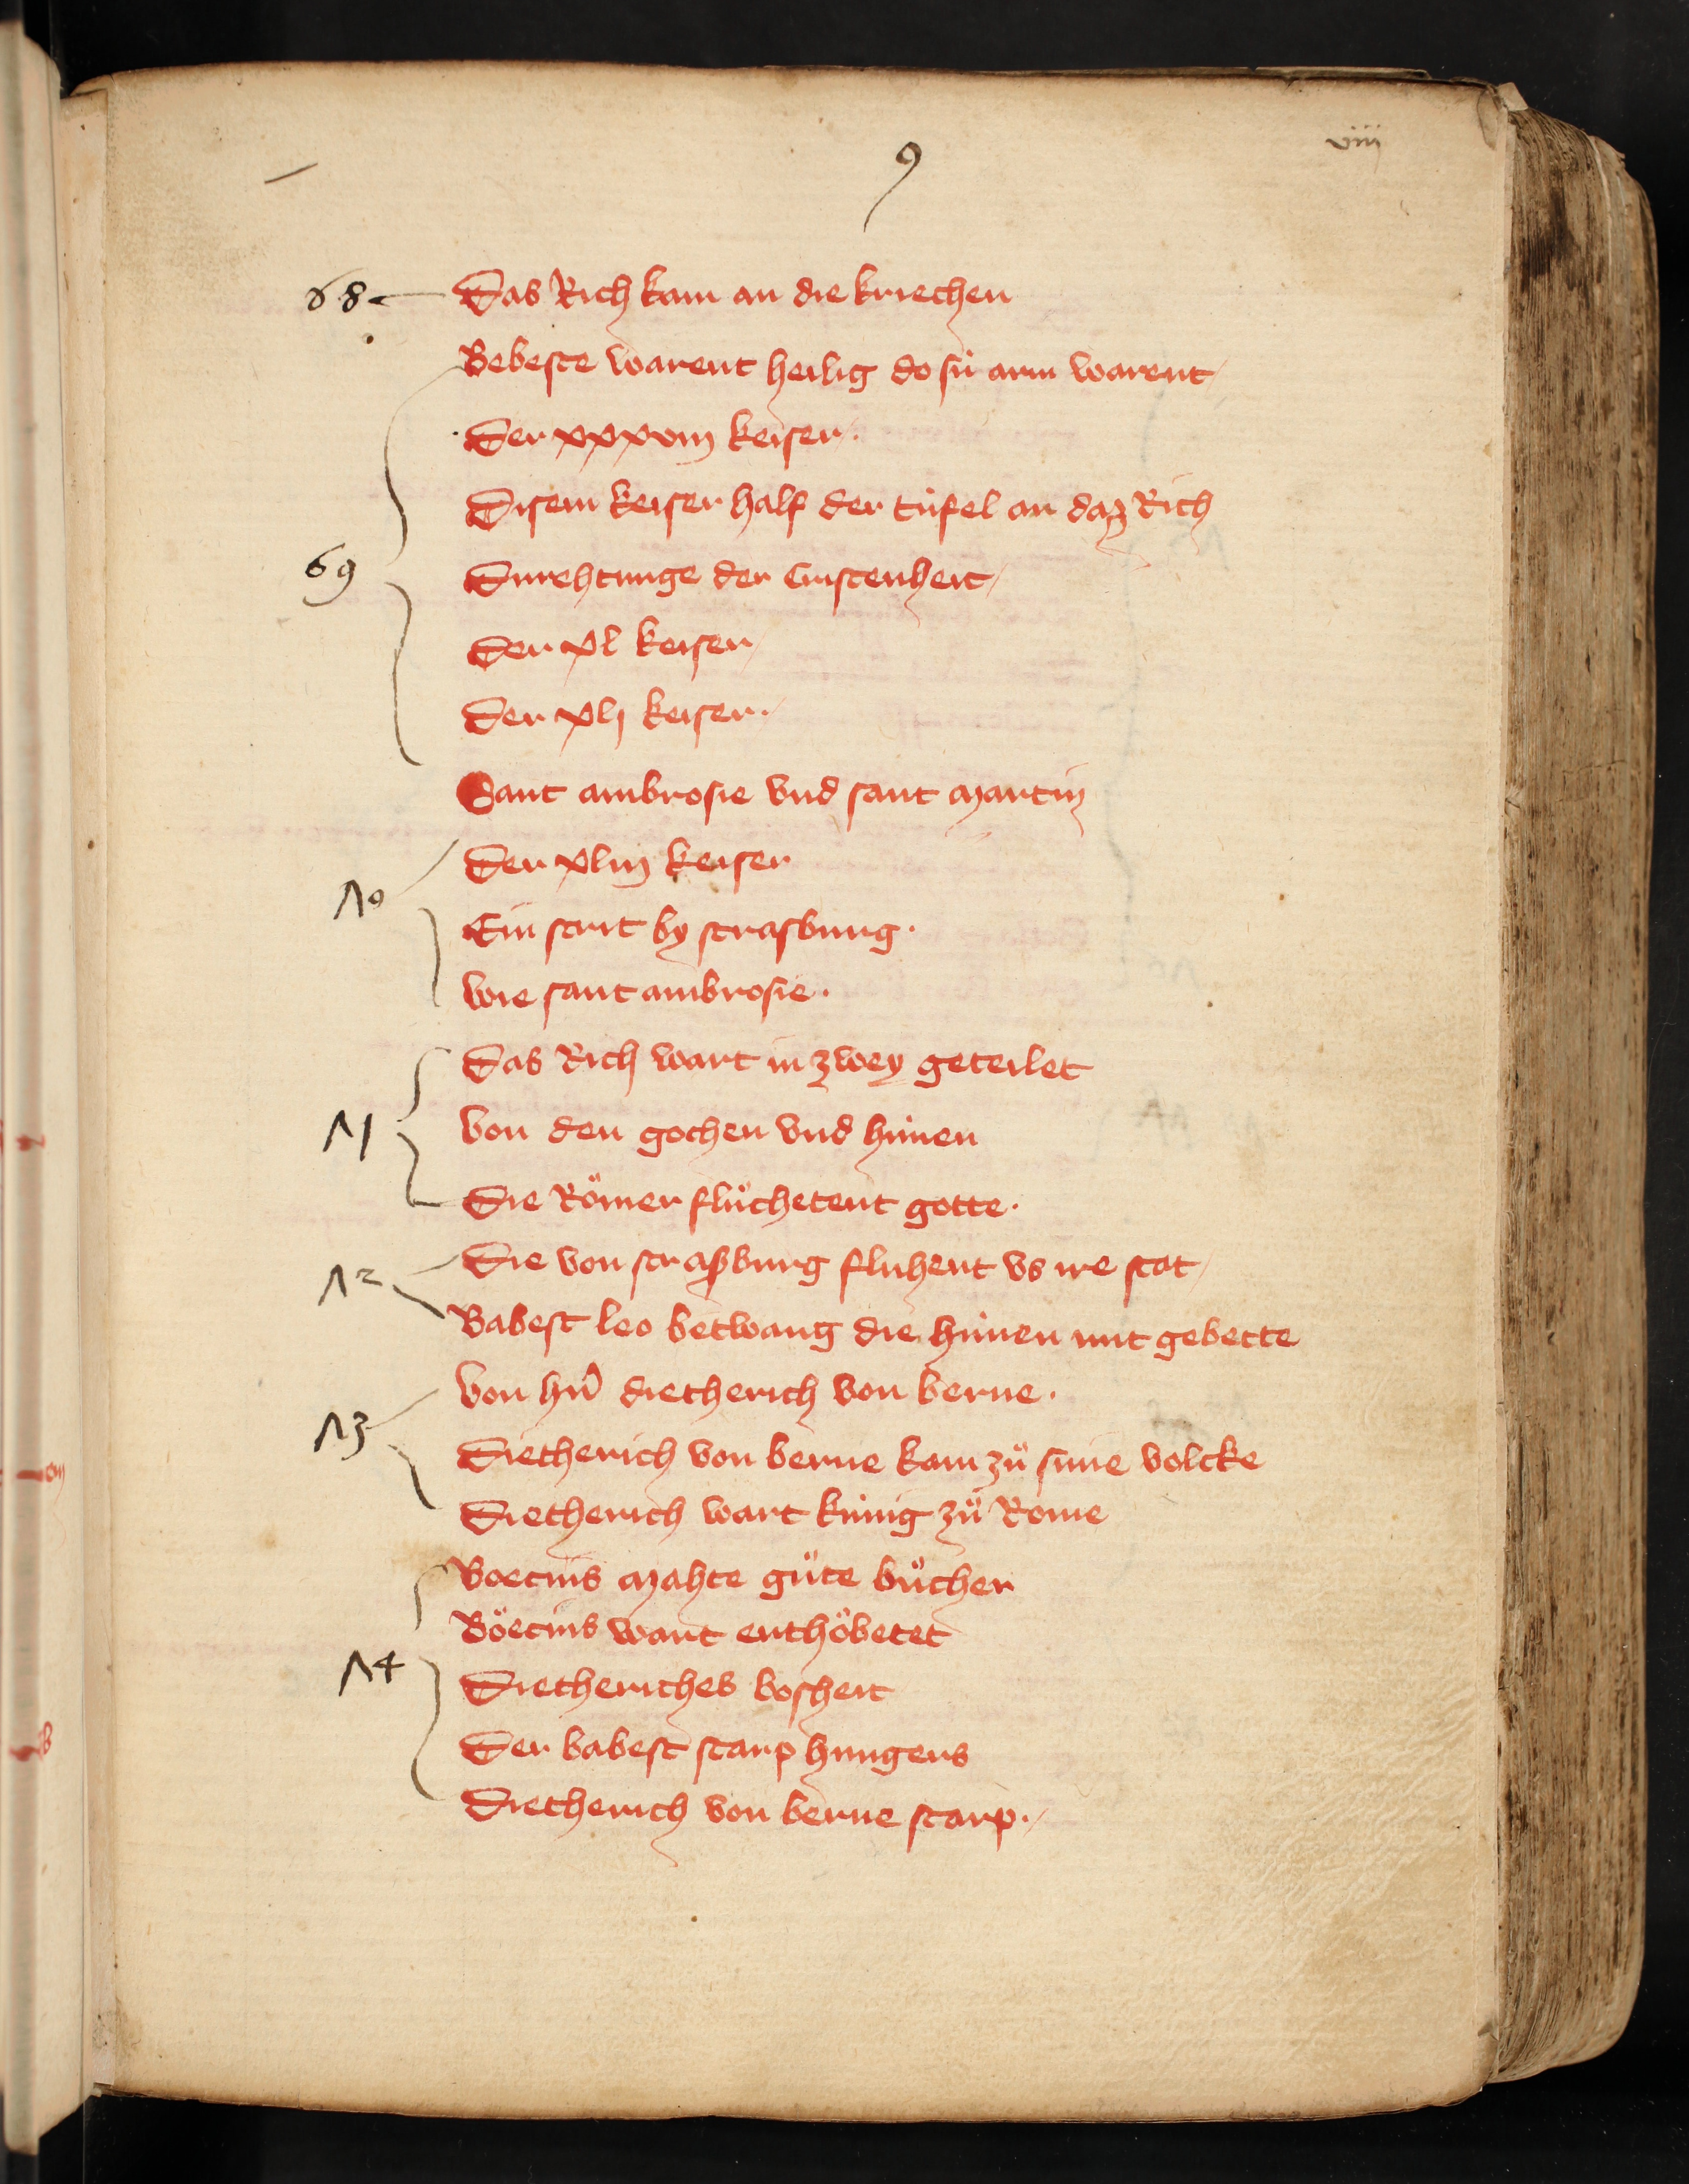 9
viij
68 Das Rich kam an die kriechen
Bebeste warent heilig do sü arm warent
Der xxxviij keiser
Disem keiser half der tüfel an daz Rich
69 Durehtunge der Cristenheit
Der xl keiser
Der xlj keiser
Sant ambrosie vnd sant martin
Der xliij keiser
70
Ein strit by strasburg
wie sant ambrosie
Das Rich wart in zwey geteilet
71 Von den gothen vnd hünen
Die Römer flůchetent gotte
72 Die von straßburg fluhent vs ire stat
Babest leo betwang die hünen mit gebette
Von hern dietherich von berne
73 Dietherich von berne kam zů sime volcke
Dietherich wart künig zů Rome
Boecius mahte gůte bůcher
Böecius wart enthöbetet
74 Dietheriches bosheit
Der babest starp hungers
Dietherich von berne starp